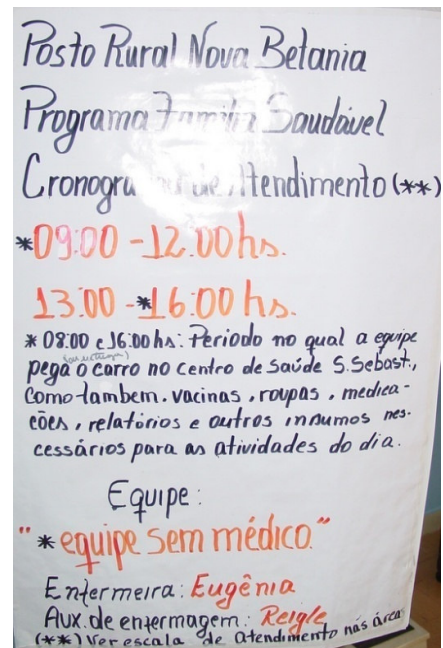 Posto Rural Nova Betania
Programa Família Saudável
Cronograma de Atendimento (**)
*09:00 - 12:00 hs.
13:00 - *16:00 hs.
* 08:00 e 16:00 hs: Periodo no qual a equipe
pega o carro no centro de Saúde S. Sebast.,
como tambem. vacinas, roupas, medica-
ções, relatórios e outros insumos nes-
cessários para as atividades do dia.
Equipe:
"*equipe sem médico."
Enfermeira: Eugênia
Aux. de enfermagem: Reigle
(**) Ver escala de atendimento nas área